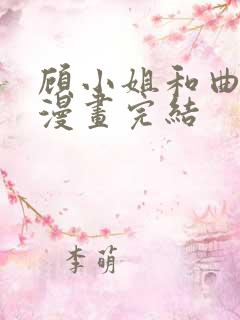 顾小姐和曲
漫畫完結
李萌